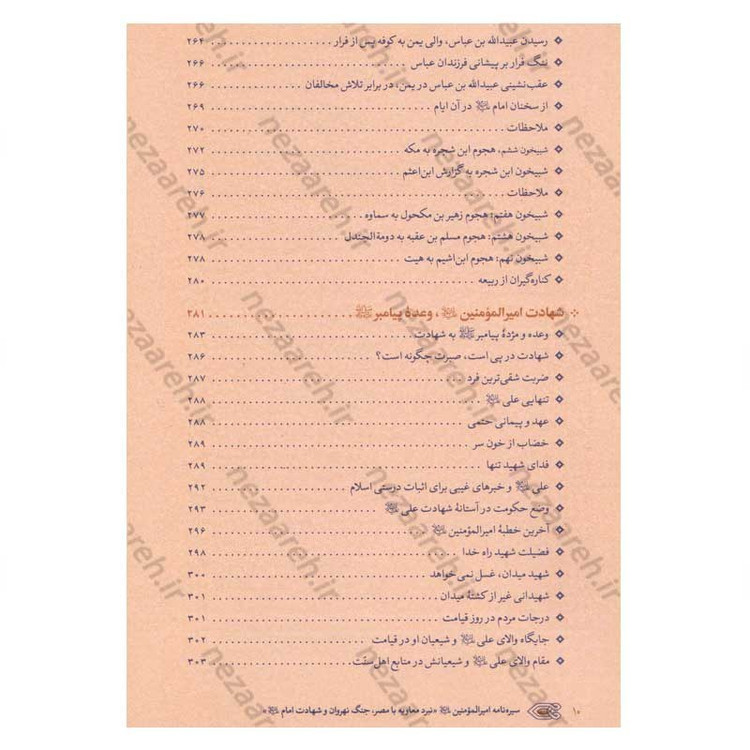 رسیدن عبیدالله بن عباس، والی یمن به کوفه پس از فرار ۲۶۴
ننگ فرار بر پیشانی فرزندان عباس ۲۶۶
عقب‌نشینی عبیدالله بن عباس در یمن، در برابر تلاش مخالفان ۲۶۶
از سخنان امام ﷺ در آن ایام ۲۶۹
ملاحظات ۲۷۰
شبیخون ششم، هجوم ابن شجره به مکه ۲۷۲
شبیخون ابن شجره به گزارش ابن‌اعثم ۲۷۵
ملاحظات ۲۷۶
شبیخون هفتم: هجوم زهیر بن مکحول به سماوه ۲۷۷
شبیخون هشتم: هجوم مسلم بن عقبه به دومة الجندل ۲۷۸
شبیخون نهم: هجوم ابن‌اشیم به هیت ۲۷۸
کناره‌گیران از ربیعه ۲۸۰
شهادت امیرالمؤمنین، وعدهٔ پیامبر ۲۸۱
وعده و مژدهٔ پیامبر به شهادت ۲۸۳
شهادت در پی است، صبرت چگونه است؟ ۲۸۶
ضربت شقی‌ترین فرد ۲۸۷
تنهایی علی ۲۸۸
عهد و پیمانی حتمی ۲۸۸
خضاب از خون سر ۲۸۹
فدای شهید تنها ۲۸۹
علی و خبرهای غیبی برای اثبات درستی اسلام ۲۹۲
وضع حکومت در آستانهٔ شهادت علی ۲۹۳
آخرین خطبهٔ امیرالمؤمنین ۲۹۶
فضیلت شهید راه خدا ۲۹۸
شهید میدان، غسل نمی‌خواهد ۳۰۰
شهیدانی غیر از کشتهٔ میدان ۳۰۱
درجات مردم در روز قیامت ۳۰۱
جایگاه والای علی و شیعیان او در قیامت ۳۰۲
مقام والای علی و شیعیانش در منابع اهل‌سنّت ۳۰۳
۱۰ سیره‌نامه امیرالمؤمنین «نبرد معاویه با مصر، جنگ نهروان و شهادت امام»
nezaareh.ir